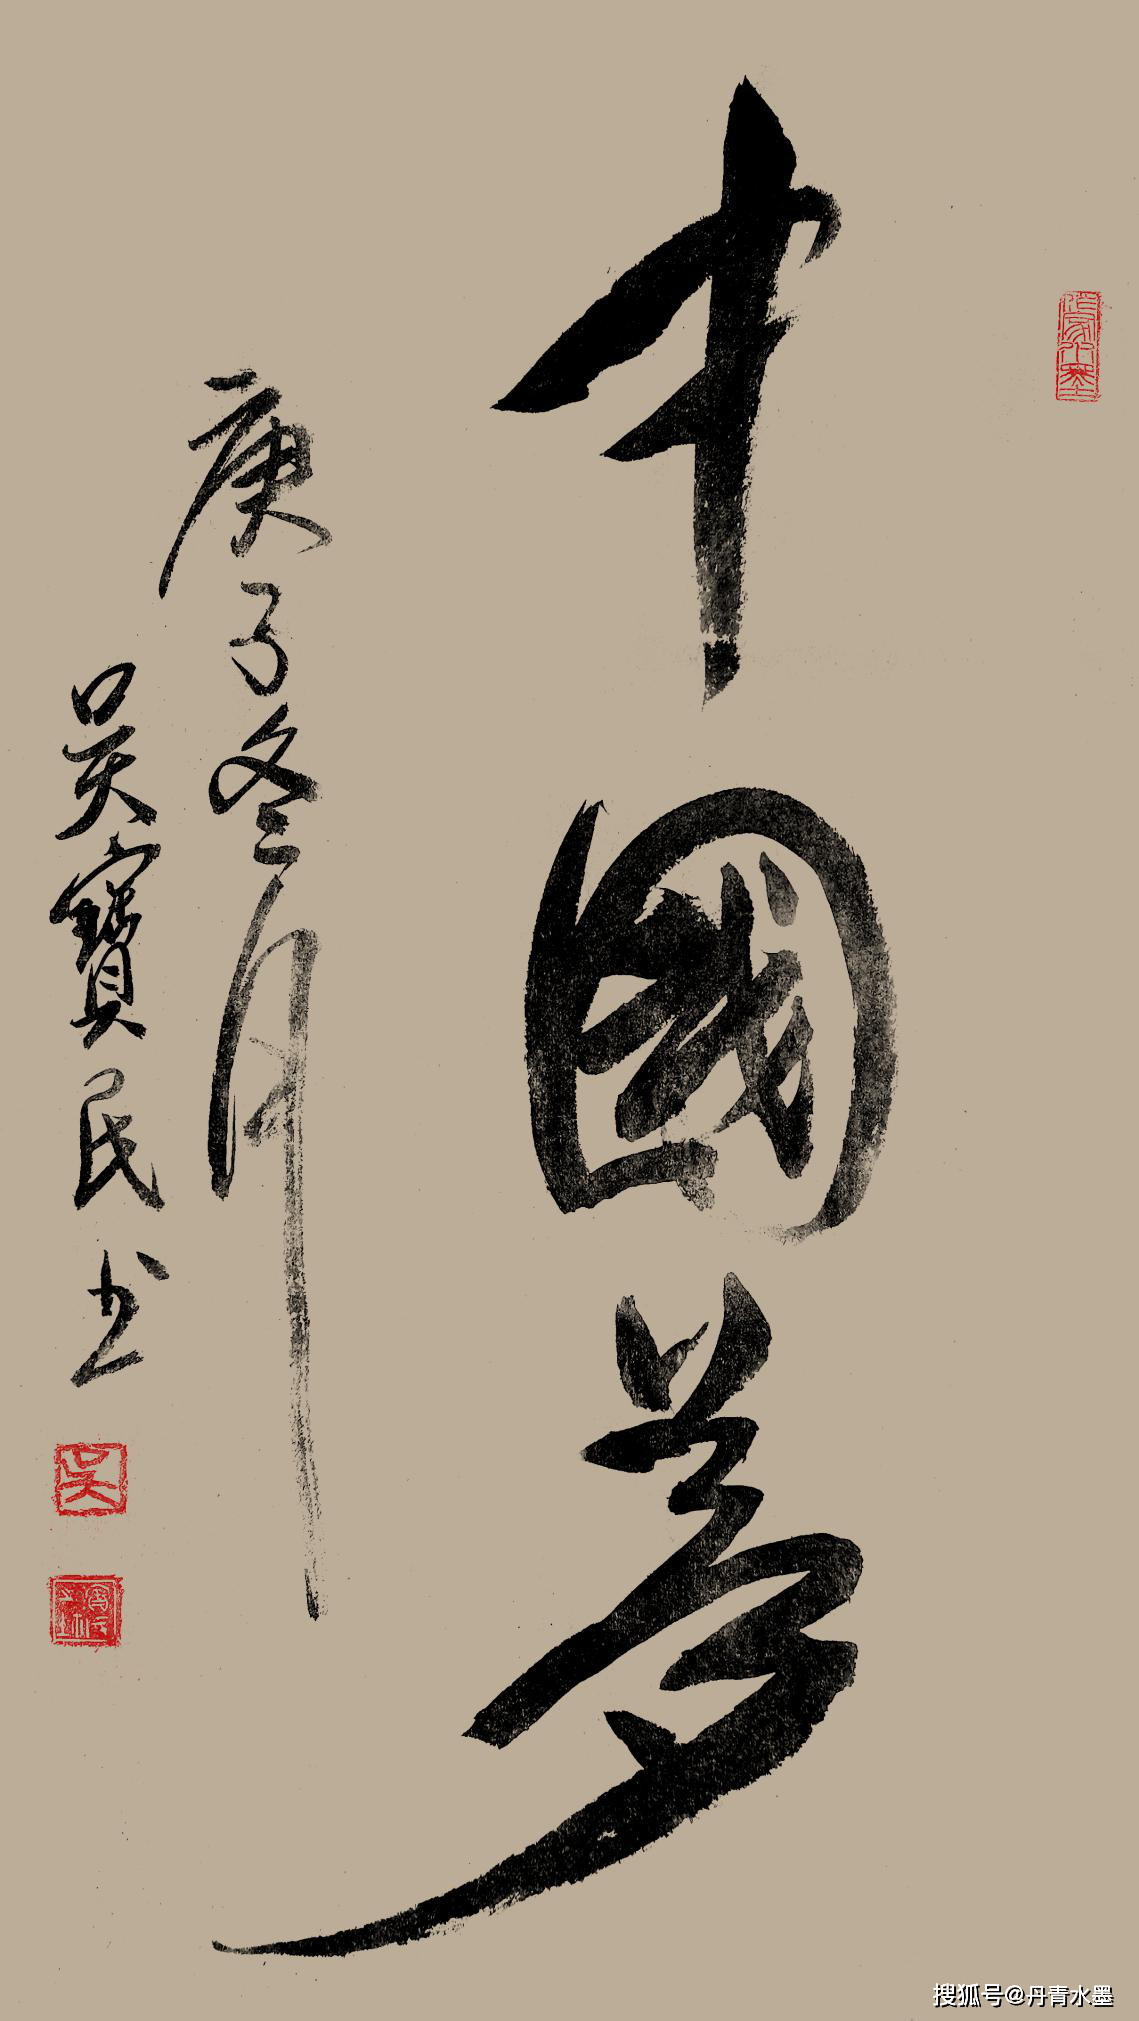 中國夢
庚子冬月
吴寶民书
吴
搜狐号@丹青水墨